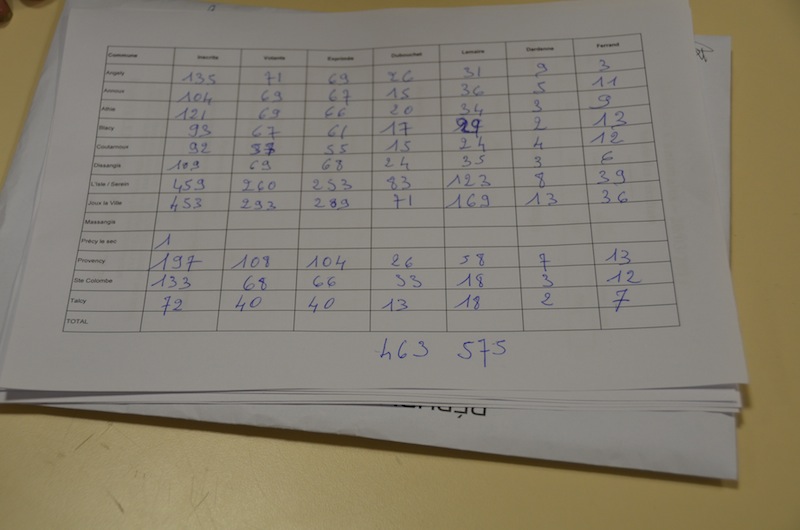 Commune Inscrits Votants Exprimés Dubouchet Lemaire Dardenne Ferrand
Angely 135 71 69 26 31 9 3
Annoux 104 69 67 15 36 5 11
Athie 121 69 66 20 34 3 9
Blacy 93 67 61 17 29 2 13
Coutarnoux 92 57 55 15 24 4 12
Dissangis 109 69 68 24 35 3 6
L'Isle / Serein 459 260 253 83 123 8 39
Joux la Ville 453 293 289 71 169 13 36
Massangis
Précy le sec 1
Provency 197 108 104 26 58 7 13
Ste Colombe 133 68 66 33 18 3 12
Talcy 72 40 40 13 18 2 7
TOTAL
463 575